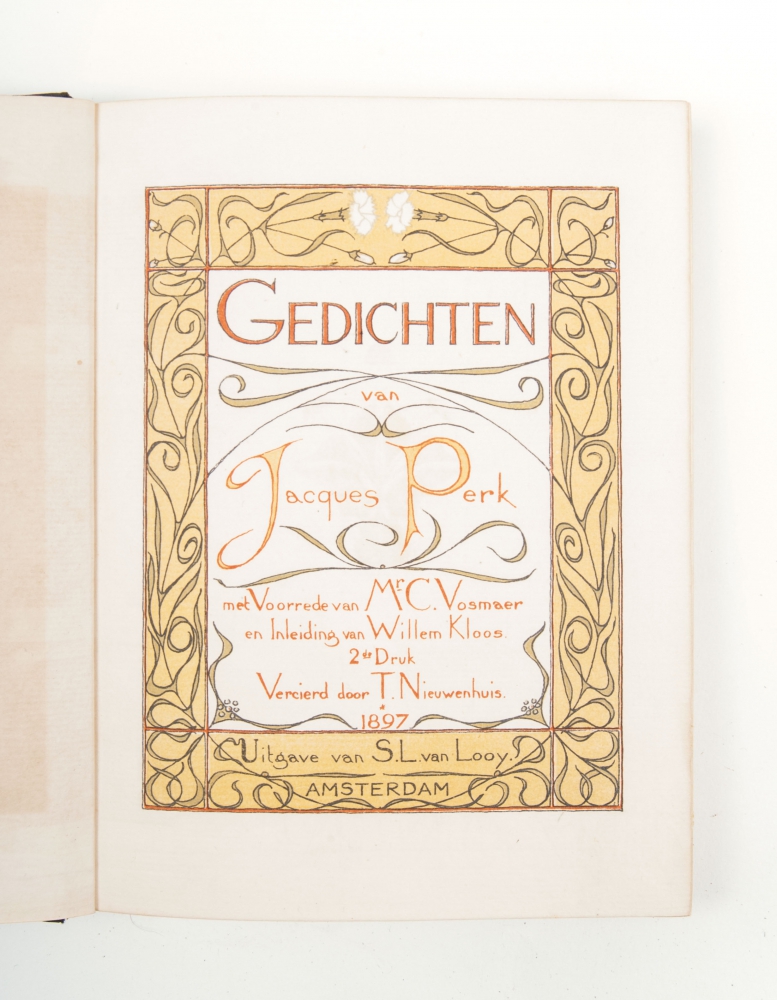 GEDICHTEN
van
Jacques Perk
met Voorrede van Mr C. Vosmaer
en Inleiding van Willem Kloos.
2de Druk
Vercierd door T. Nieuwenhuis.
1897
Uitgave van S. L. van Looy.
AMSTERDAM